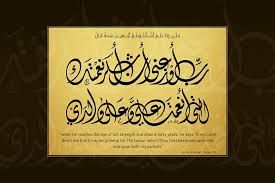 حتى إذا بلغ أشده وبلغ أربعين سنة قال
رب أوزعني أن أشكر نعمتك
التي أنعمت علي وعلى والدي
when he reaches the age of full strength and attains forty years, he says "O my Lord!
Grant me that I may be grateful for Thy favour which Thou hast bestowed upon me,
and upon both my parents